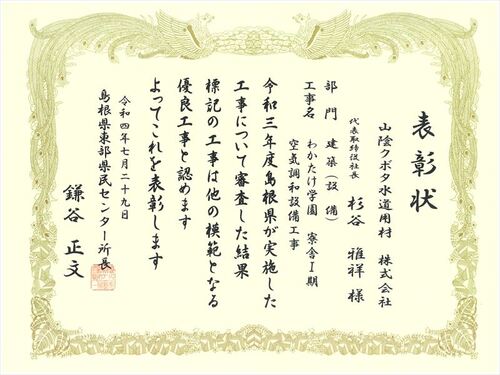 表彰状
山陰クボタ水道用材　株式会社
代表取締役社長　杉谷　雅祥　様
部門　建築（設備）
工事名　わかたけ学園　寮舎Ⅰ期
空気調和設備工事
令和三年度島根県が実施した
工事について審査した結果
標記の工事は他の模範となる
優良工事と認めます
よってこれを表彰します
令和四年七月二十九日
島根県東部県民センター所長
鎌谷　正文